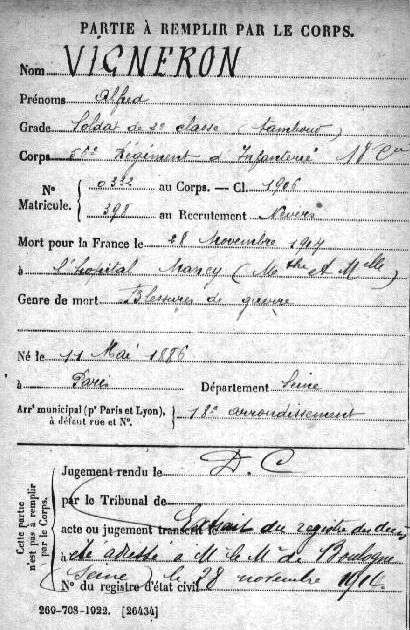 PARTIE À REMPLIR PAR LE CORPS.
Nom VIGNERON
Prénoms Alfred
Grade Soldat de 2e classe (tambour)
Corps Régiment d'Infanterie
No Matricule. au Corps. — Cl. 1906
398 au Recrutement Nevers
Mort pour la France le 28 Novembre 1914
à l'hôpital Nancy (Mthe et Mlle)
Genre de mort Blessures de guerre
Né le 11 Mai 1886
à Paris Département Seine
Arrt municipal (pr Paris et Lyon), à défaut rue et No. 18e arrondissement
Cette partie n'est pas à remplir par le Corps.
Jugement rendu le D.C
par le Tribunal de
acte ou jugement transcrit le Extrait du registre des décès
à été adressé à M. le M. de Boulogne
(Seine) le 28 novembre 1916
No du registre d'état civil
269-708-1922. [26434]